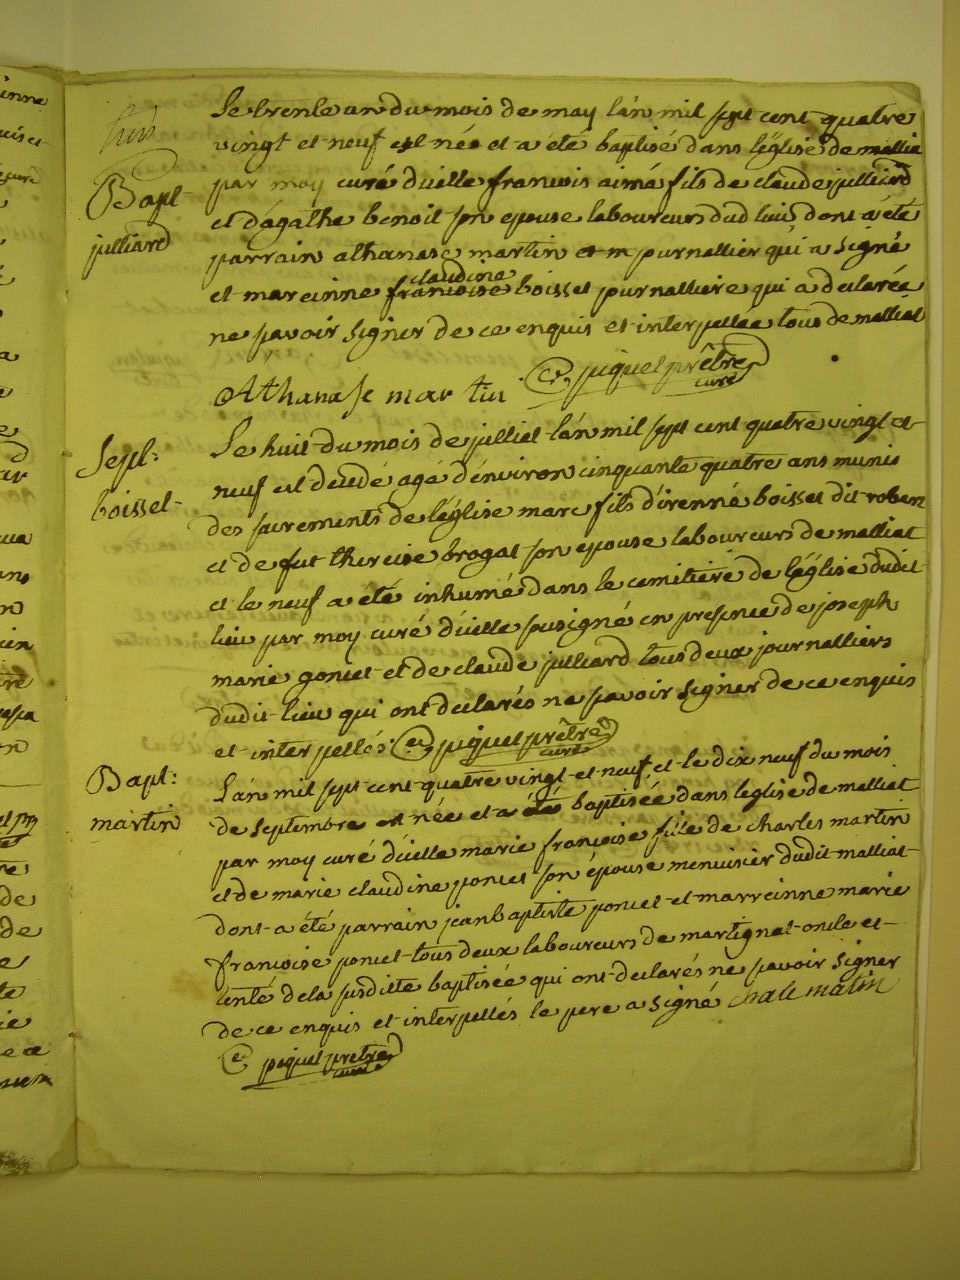 Bapt
julliard
Le trente un du mois de may lán mil sept cent quatre
vingt et neuf est née et a été baptisé dans léglise de malliat
par moy curé dicelle francois aimé fils de claude julliard
et dágathe benoit son epouse laboureurs dud lieu dont a été
parrain athanase martin journallier qui a signé
claudine
et mareinne francoise boisset journalliere qui a declarée
ne savoir signer de ce enquis et interpellée tous de malliat
Athanase martin C. piquet prêtre
curé
Sept:
boisset
Le huit du mois de julliet lán mil sept cent quatre vingt et
neuf est decedé agé d'environ cinquante quatre ans munis
des sacrements de léglise marc fils d'irenné boisset dit robin
et de fut therese brogat son epouse laboureurs de malliat
et le neuf a été inhumé dans le cemitière de léglise dudit
lieu par moy curé dicelle sousigné en presence de joseph
marie goniet et de claude julliard tous deux journalliers
dudit lieu qui ont declarés ne savoir signer de ce enquis
et interpellés. C. piquet prêtre
curé
Bapt:
martin
Lán mil sept cent quatre vingt et neuf et le dix neuf du mois
de septembre est née et a été baptisée dans leglise de malliat
par moy curé dicelle marie francoise fille de charles martin
et de marie claudine poncet son épouse menuisier dudit malliat
dont a été parrain jean baptiste poncet et marreinne marie
francoise poncet tous deux laboureurs de martignat oncle et
tente de la susditte baptisée qui ont declarés ne savoir signer
de ce enquis et interpellés le pere a signé
C. piquet prêtre
curé